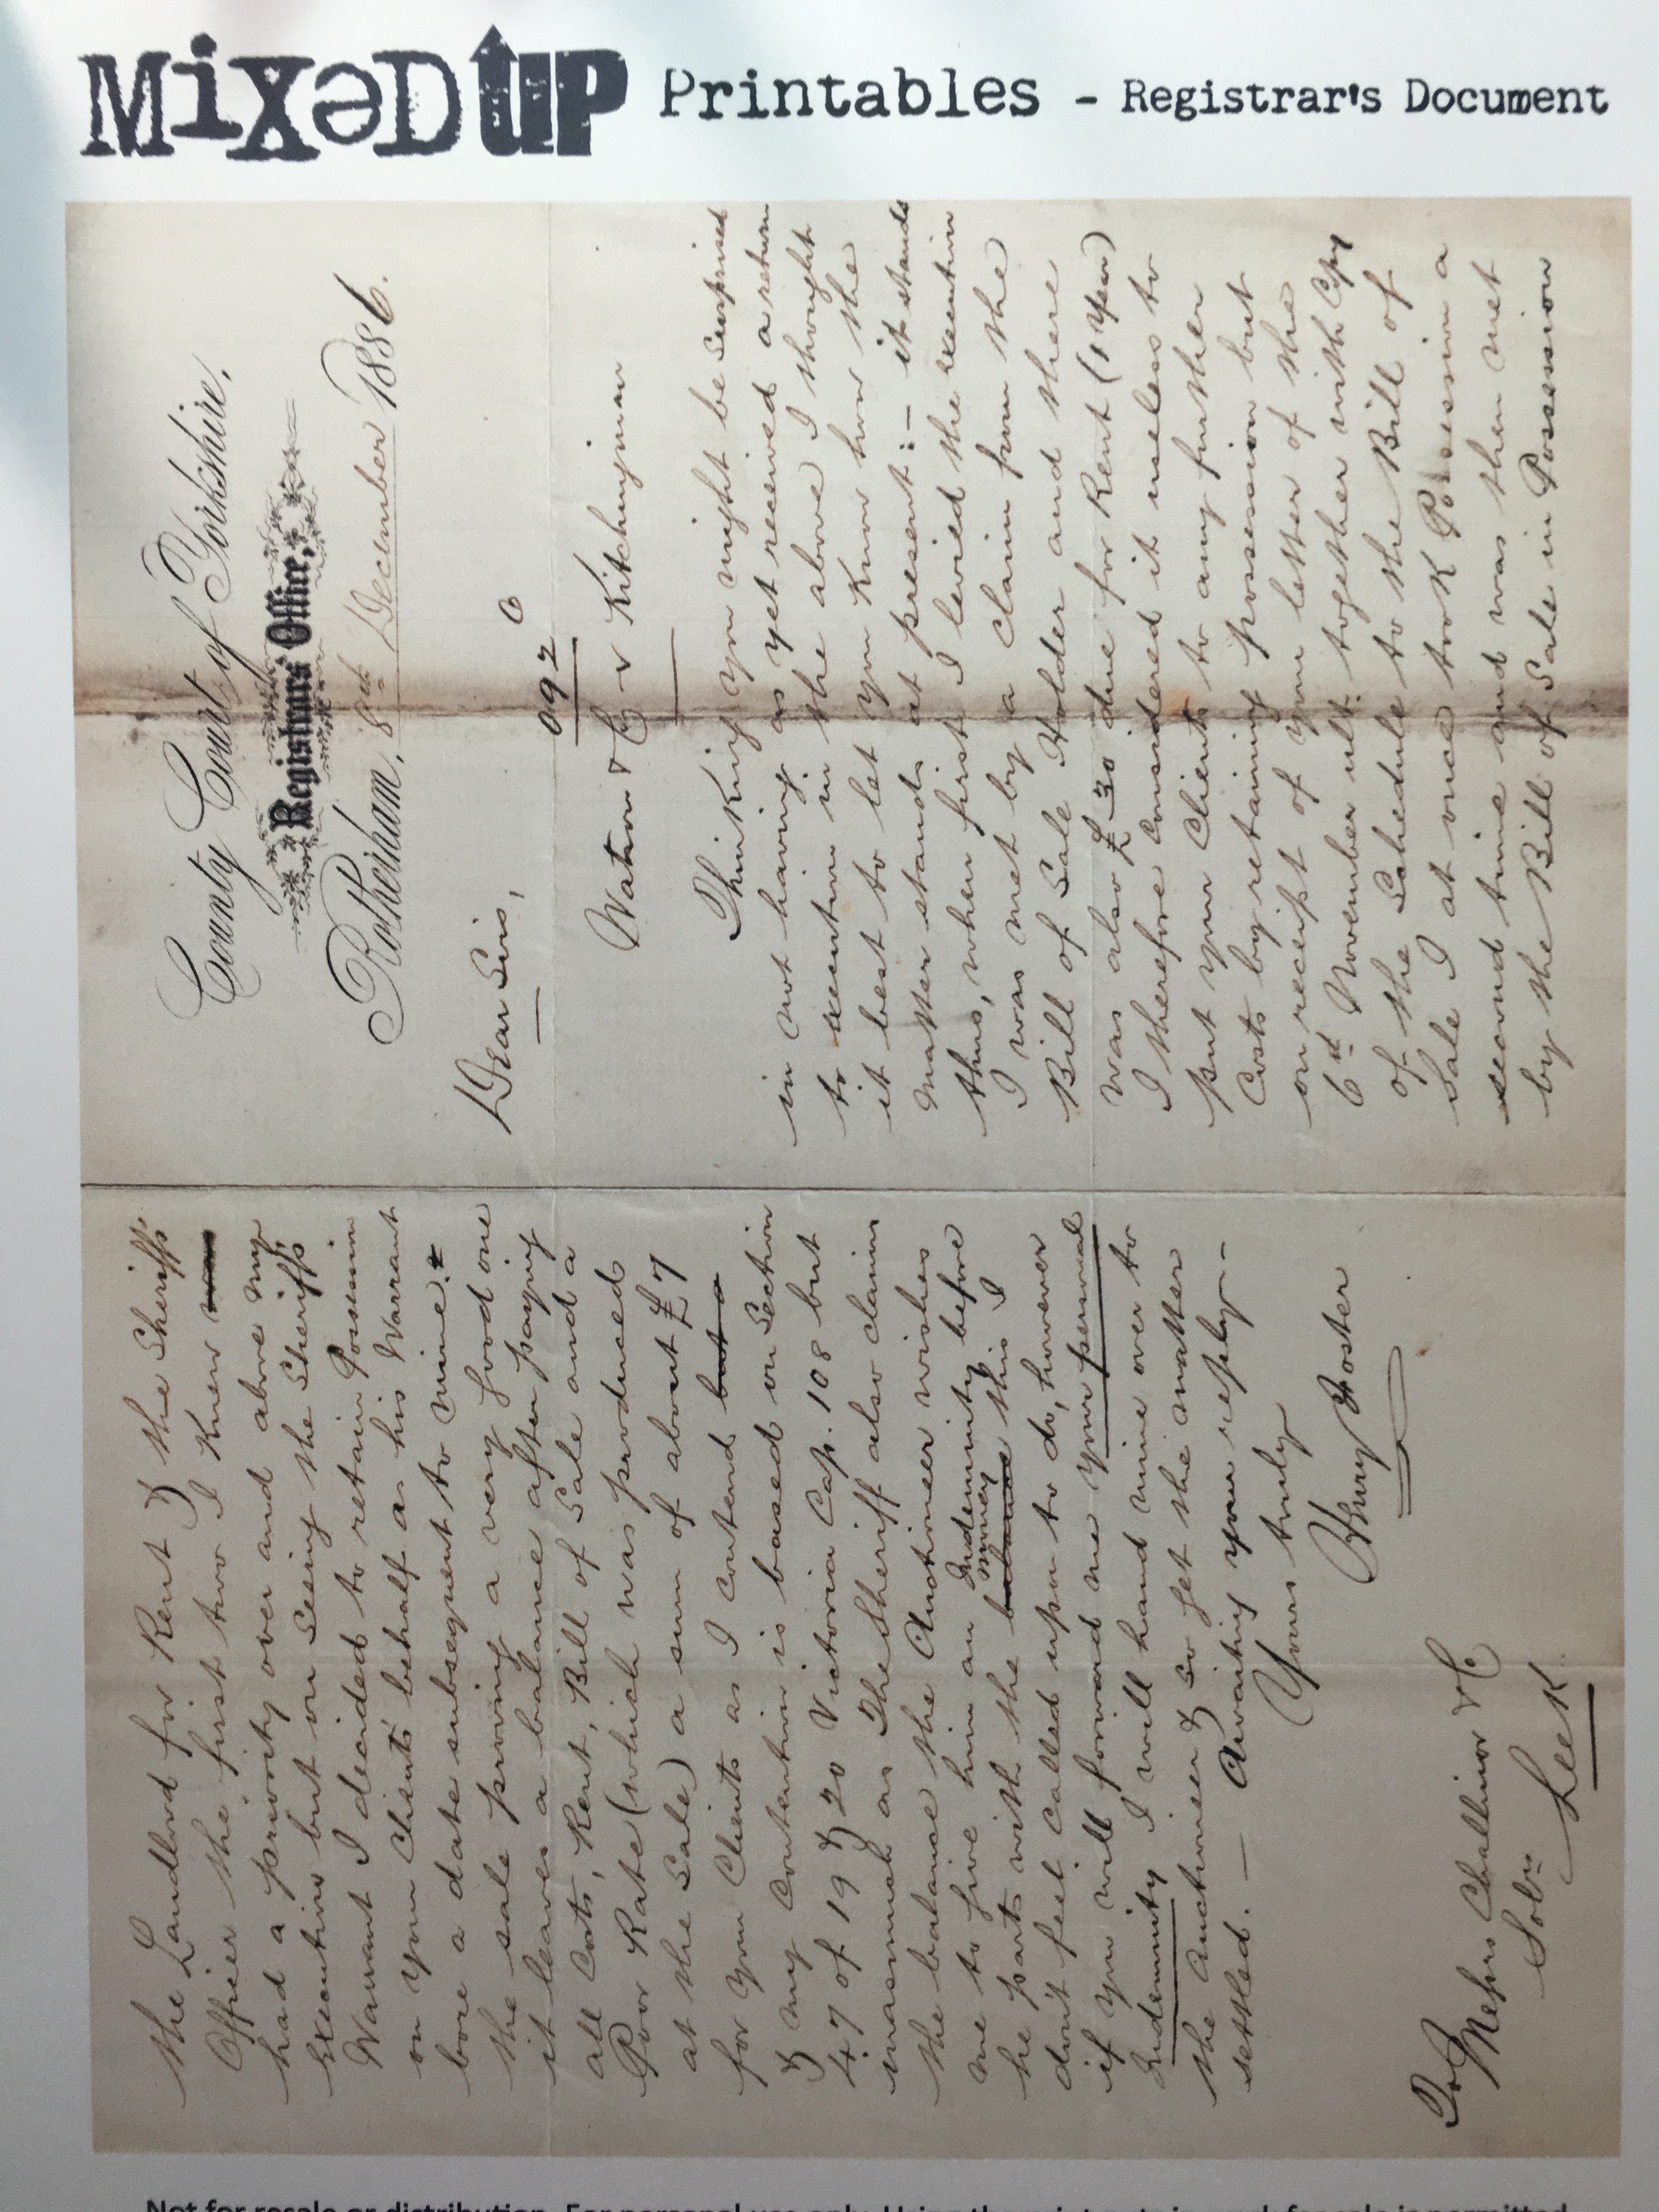 MixeD UP Printables - Registrar's Document
County Court of Yorkshire,
Registrars' Office,
Rotherham, 8th December 1886.
Dear Sirs,
O 92 C
Watson & Co v Kitchingman
Thinking you might be surprised
in not having as yet received a return
to execution in the above I thought
it best to let you know how the
matter stands at present :- it stands
thus, when first I levied the execution
I was met by a claim from the
Bill of Sale Holder and there
was also £30 due for Rent (1 Year)
I therefore considered it useless to
put your Clients to any further
Costs by retaining possession but
on receipt of your letter of the
6th November ult: together with Copy
of the Schedule to the Bill of
Sale I at once took Possession a
second time and was then met
by the Bill of Sale in Possession
the Landlord for Rent & the Sheriff's
Officer the first two I knew was
had a priority over and above my
Execution but on seeing the Sheriff's
Warrant I decided to retain Possession
on your Clients' behalf as his Warrant
bore a date subsequent to mine. &
the sale proving a very good one
it leaves a balance after paying
all Costs, Rent, Bill of Sale and a
Poor Rate (which was produced
at the Sale) a sum of about £7
for your Clients as I contend but a
& my contention is based on Section
47 of 19 & 20 Victoria Cap. 108 but
inasmuch as The Sheriff also claim
the balance the Auctioneer wishes
me to give him an Indemnity before
he parts with the balance money this I
don't feel called upon to do, however
if you will forward me your personal
Indemnity I will hand mine over to
the Auctioneer & so get the matter
settled. — Awaiting your reply -
Yours truly
Henry Foster
To
Messrs Challinor & Co
Solrs
Leek
Not for resale or distribution. For personal use only. Using the prints in work for sale is permitted